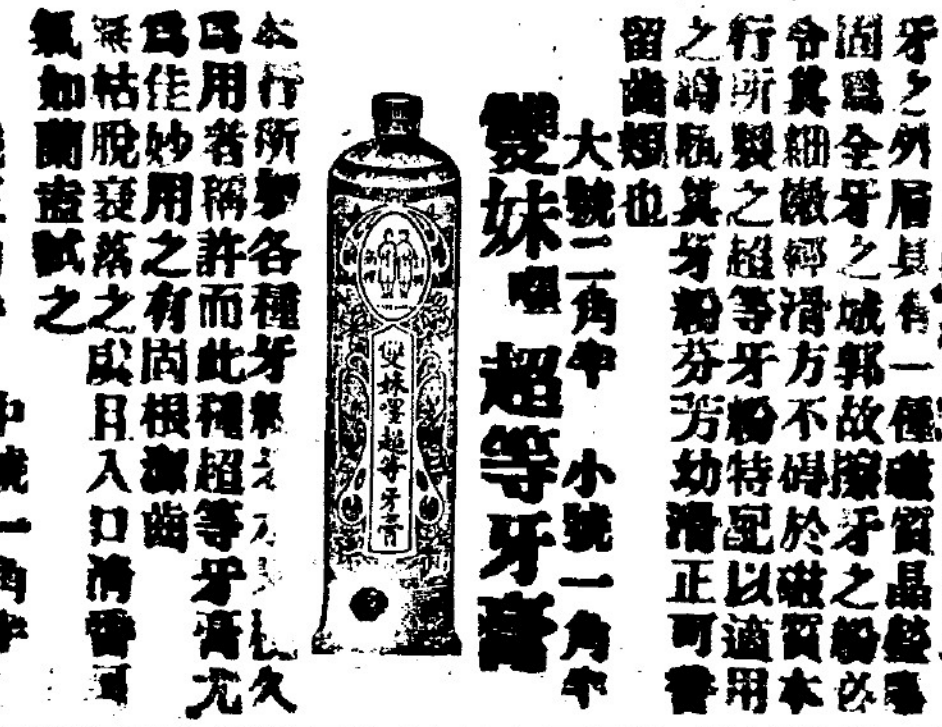 牙之外層具有一種磁質晶瑩
固爲全牙之城郭故擦牙之粉必
令其細嫩輕滑方不碍於磁質本
行所製之超等牙粉特配以適用
之樽瓶其牙粉芬芳幼滑正可
留齒頰也
大號二角半 小號一角半
雙妹嚜 超等牙膏
雙妹嚜超等牙膏
本行所製各種牙粉之久
爲用者稱許而此種超等牙膏尤
爲佳妙用之有固根潔齒
無枯脫衰落之虞且入口清香
氣如蘭盍試之
中號一角半